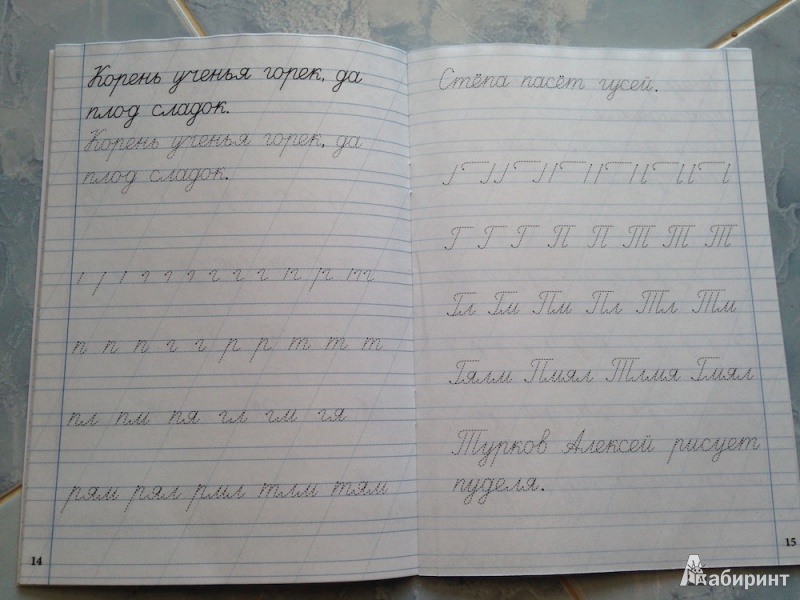 Корень ученья горек, да
плод сладок.
Корень ученья горек, да
плод сладок.
п п п г г р р т т т
пл пм пя гл гм гя
рям рял рмл тлм тям
14
Стёпа пасёт гусей.
Г Г Г П П Т Т Т
Гл Гм Пм Пл Тл Тм
Гялм Пмял Тлмя Гмял
Турков Алексей рисует
пуделя.
15
Лабиринт